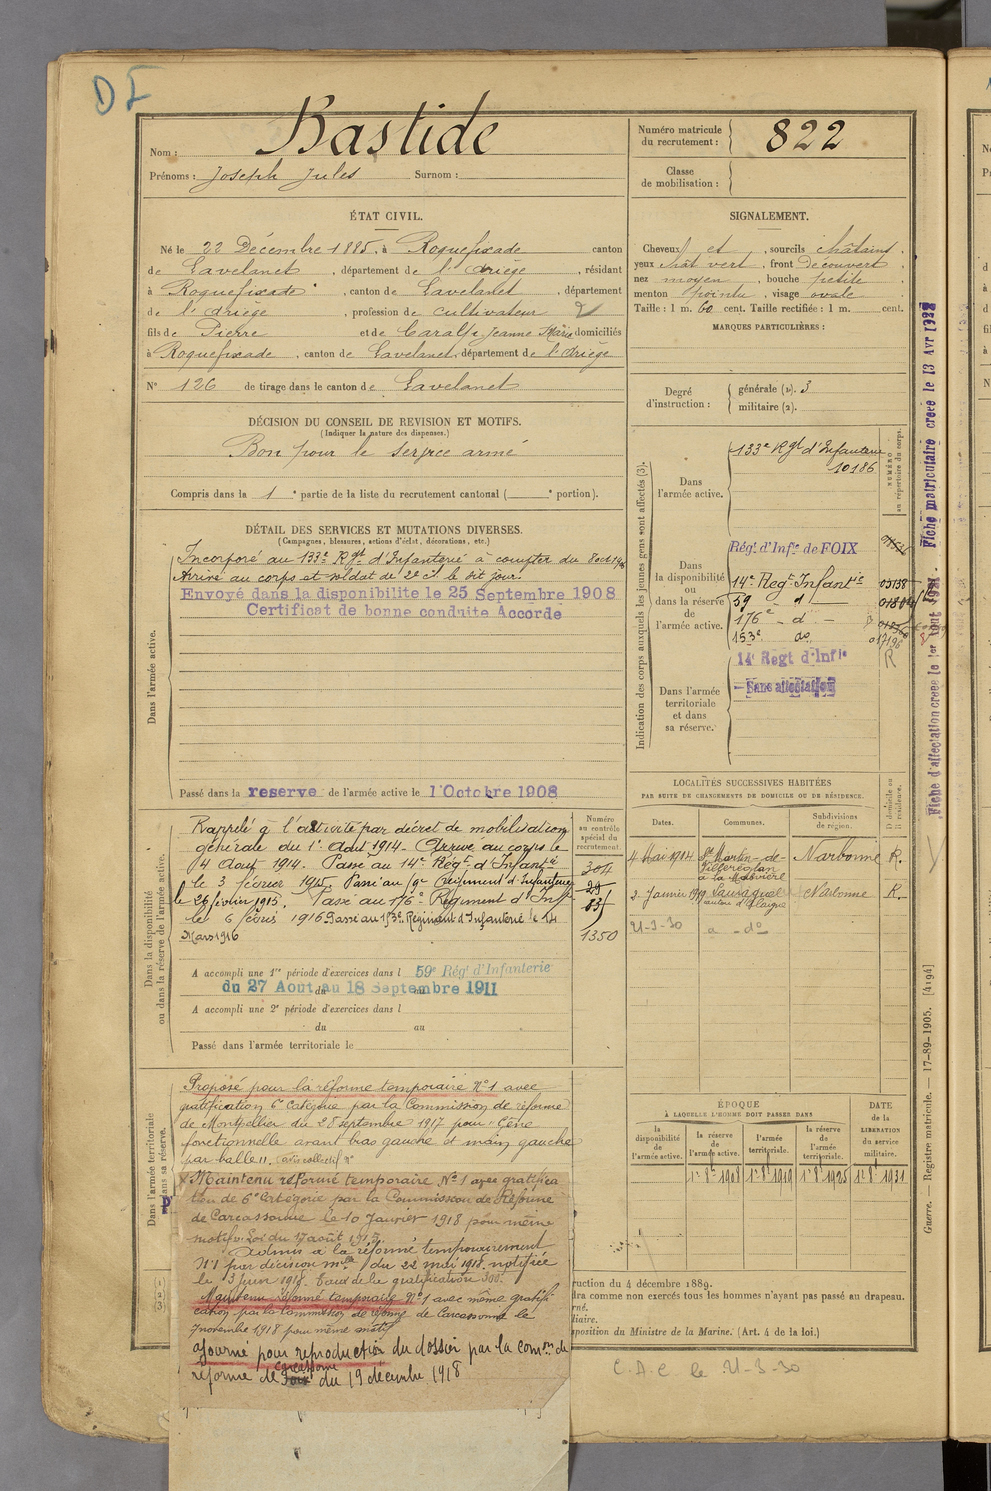 DE
Nom : Bastide
Prénoms : Joseph Jules Surnom :
Numéro matricule du recrutement : 822
Classe de mobilisation :
ÉTAT CIVIL.
Né le 22 Décembre 1885, à Roquefixade canton
de Lavelanet, département de l'Ariège, résidant
à Roquefixade, canton de Lavelanet, département
de l'Ariège, profession de cultivateur
fils de Pierre et de Caralp Jeanne Marie domiciliés
à Roquefixade, canton de Lavelanet, département de l'Ariège
N° 126 de tirage dans le canton de Lavelanet
SIGNALEMENT.
Cheveux et, sourcils châtains,
yeux chât vert, front Découvert,
nez moyen, bouche petite,
menton pointu, visage ovale.
Taille : 1 m. 60 cent. Taille rectifiée : 1 m. cent.
MARQUES PARTICULIÈRES :
Degré d'instruction : générale (2). 3
militaire (2).
DÉCISION DU CONSEIL DE REVISION ET MOTIFS.
(Indiquer la nature des dispenses.)
Bon pour le service armé
Compris dans la 1e partie de la liste du recrutement cantonal ( e portion).
DÉTAIL DES SERVICES ET MUTATIONS DIVERSES.
(Campagnes, blessures, actions d'éclat, décorations, etc.)
Dans l'armée active.
Incorporé au 133e Rgt d'Infanterie à compter du 8 oct 1906
Arrivé au corps et soldat de 2e cl. le dit jour.
Envoyé dans la disponibilite le 25 Septembre 1908
Certificat de bonne conduite Accordé
Passé dans la reserve de l'armée active le 1 Octobre 1908
Indication des corps auxquels les jeunes gens sont affectés (3).
NUMÉRO au répertoire du corps.
Dans l'armée active.
133e Rgt d'Infanterie
10186
Dans la disponibilité ou dans la réserve de l'armée active.
Régt. d'Inf.ie de FOIX
14e Regt Infantie 05138
59 d
176e d -
153e do 017196
14e Regt d'Infie R
Dans l'armée territoriale et dans sa réserve.
Sans affectation
Fiche d'affectation créée le 1er
Fiche matriculaire créée le 13 Avr
LOCALITÉS SUCCESSIVES HABITÉES
PAR SUITE DE CHANGEMENTS DE DOMICILE OU DE RÉSIDENCE.
Dates. Communes. Subdivisions de région. D domicile ou R résidence.
4 Mai 1914 St Martin-de-Villereglan à la Narbonne R.
2 Janvier 1919 canton d'Alaigne Narbonne R.
21-3-30 a - do
Dans la disponibilité ou dans la réserve de l'armée active.
Numéro au contrôle spécial du recrutement.
Rappelé à l'activité par décret de mobilisation
générale du 1er Août 1914. Arrivé au corps le
4 Août 1914. Passé au 14e Régt d'Infantie
le 3 février 1915. Passé au Régiment d'Infanterie
le 26 février 1915. Passé au 176e Régiment d'Infie
le 6 février 1916 Passé au 153e Régiment d'Infanterie le 14
Mars 1916
304
1350
A accompli une 1re période d'exercices dans l 59e Régt d'Infanterie
du 27 Aout au 18 Septembre 1911
A accompli une 2e période d'exercices dans l
du au
Passé dans l'armée territoriale le
ÉPOQUE
À LAQUELLE L'HOMME DOIT PASSER DANS
la disponibilité de l'armée active. la réserve de l'armée active. l'armée territoriale. la réserve de l'armée territoriale.
DATE de la LIBERATION du service militaire.
1er 8bre 1908 1er 8bre 1919 1er 8bre 1925 1er 8bre 1931
Dans l'armée territoriale
dans sa réserve.
Proposé pour la réforme temporaire N°1 avec
gratification 6e Catégorie par la Commission de réforme
de Montpellier du 28 septembre 1917 pour "Gêne
fonctionnelle avant bras gauche et main gauche
par balle". avis collectif n°
Maintenu réformé temporaire N°1 avec gratifica
tion de 6e Catégorie par la Commission de Réforme
de Carcassonne le 10 Janvier 1918 pour même
motif. Loi du 17 août 1917.
Admis à la réforme temporairement
N°1 par décision mlle du 22 mai 1918 notifiée
le 3 juin 1918. Taux de la gratification 300.
Maintenu réformé temporaire N°1 avec même gratifi
cation par la Commission de réforme de Carcassonne le
7 novembre 1918 pour même motif
ajourné pour reproduction du dossier par la comon de
réforme de Carcassonne du 19 décembre 1918
ruction du 4 décembre 1889.
dra comme non exercés tous les hommes n'ayant pas passé au drapeau.
rné.
liaire.
sposition du Ministre de la Marine. (Art. 4 de la loi.)
C.A.C le 21-3-30
Guerre. — Registre matricule. — 17-89-1905. [4194]